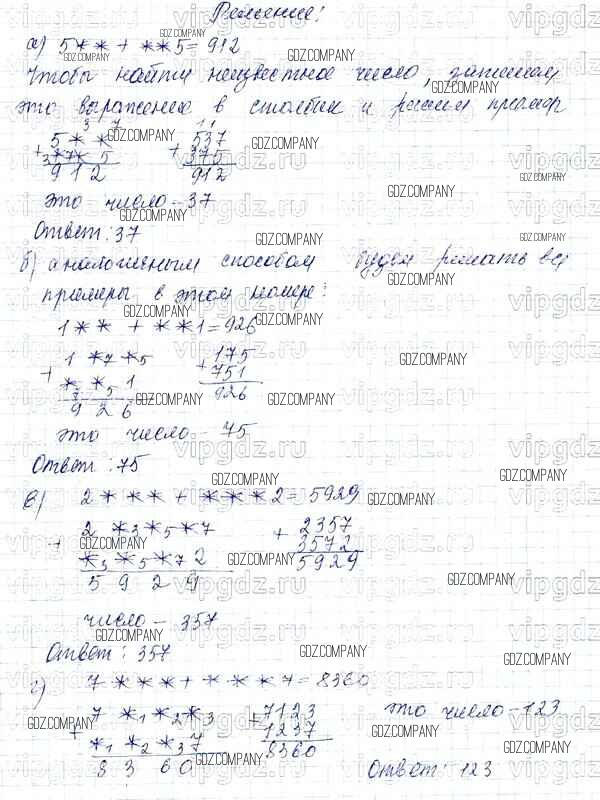 Решение:
а) 5** + **5 = 912
Чтобы найти неизвестное число, запишем
это выражение в столбик и решим пример
3 7
5 * *
+
3*7* 5
9 1 2
1 1
537
+
375
912
это число - 37
Ответ: 37
б) аналогичным способом будем решать все
примеры в этом номере:
1** + **1 = 926
1 *7 *5
+
*7 *5 1
9 2 6
175
+
751
926
это число - 75
Ответ: 75
в) 2*** + ***2 = 5929
2 *3 *5 *7
+
*3 *5 *7 2
5 9 2 9
2357
+
3572
5929
число - 357
Ответ: 357
г) 7*** + ***7 = 8360
7 *1 *2 *3
+
*1 *2 *3 7
8 3 6 0
7123
+
1237
8360
это число - 123
Ответ: 123
vipgdz.ru
GDZ.COMPANY